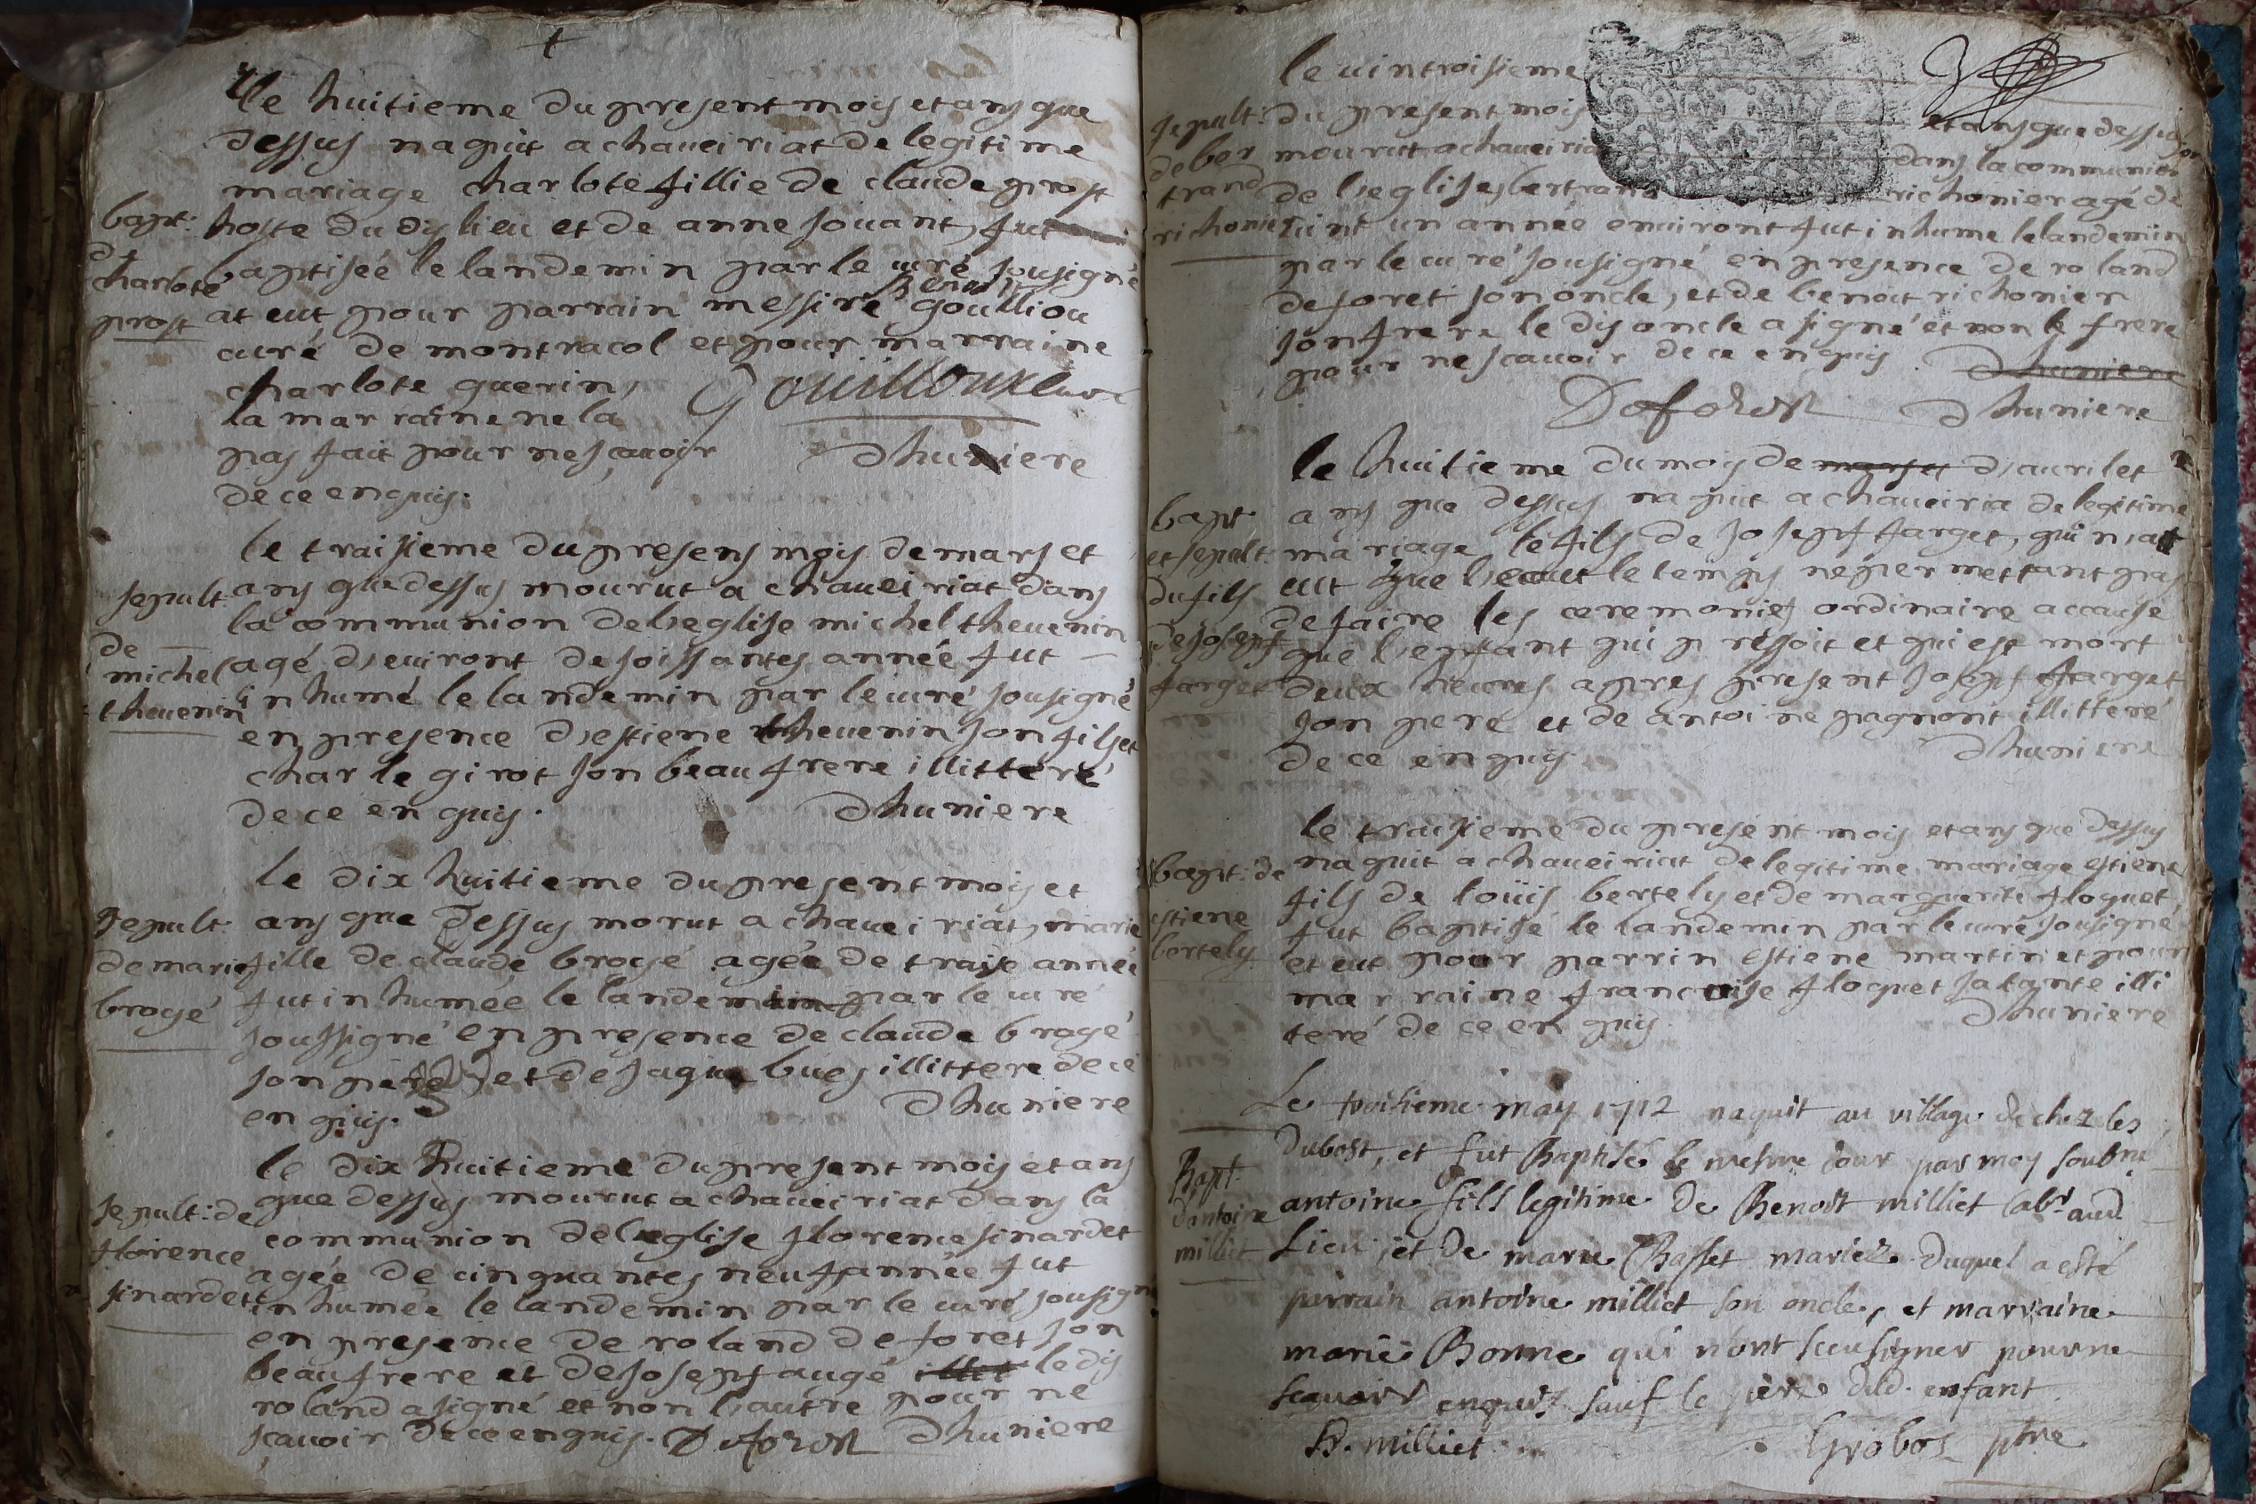 le huitieme du present mois et ans que
dessus naquit a chaveiriat de legitime
mariage charlote fillie de claude prost
bapt: hoste du dis lieu et de anne jouant, fut
de
charlote baptiseé le landemin par le curé sousigné
prost at eut pour parrain messire goulliou
curé de montracol et pour marraine
charlote guerin,
Gouilloux curé
la marraine ne la
pas fait pour ne scavoir
dhuniere
de ce enquis.
le traisieme du presens mois de mars et
sepult: ans que dessus mourut a chaveiriat dans
la communion de l'eglise michel thevenin
de
michel agé d'euiront de soissantes année fut
thevenin inhumé le landemin par le curé sousigné
en presence d'estiene thevenin son fils et
charle girot son beau frere illitteré
de ce en quis. dhuniere
le dix huitieme du present mois et
sepult: ans que dessus morut a chaveiriat, marie
de marie fille de claude brogé ageé de traise année
brogé fut inhumeé le landemin par le curé
soussigné en presence de claude brogé
son pere et de jaque bues illittere de ce
en quis. dhuniere
le dix huitieme du present mois et ans
sepult: de que dessus mourut a chaveiriat dans la
communion de l'eglise florence sinardet
florence ageé de cinquantes neuf année fut
sinardet inhumeé le landemin par le curé sousigné
en presence de roland deforet son
beaufrere et de josepf augé illit le dis
roland a signé et non l'autre pour ne
scavoir de ce enquis. Deforest dhuniere
le vintroisieme
sepult: du present mois et ans que dessus
de ber mourut a chaveiria dans la communion
trand de l'eglise, bertrand richonier agé de
richonier vint un année environt fut inhume le landemin
par le curé sousigné en presence de roland
deforet son oncle, et de benoit richonier
son frere le dis oncle a signé et non le frere
pour ne scavoir de ce enquis dhuniere
Deforest dhuniere
le huitieme du moy de mars et d'avril et
bapt ans que dessus naquit a chaveiria de legitime
et sepult: mariage le fils de josepf farget, qui n'at
du fils eut que l'eau le temps ne permettant pas
de faire les ceremonies ordinaire a cause
de josepf que l'enfant qui pressoit et qui est mort
farget deux heures apres present josepf farget
son pere et de antoine pagnont illitteré
de ce en quis. dhuniere
le traisieme du present mois et ans que dessus
bapt: de naquit a chaveiriat de legitime mariage estiene
estiene fils de loüis bertely et de marguerite floquet,
bertely fut baptisé le landemin par le curé sousigné
et eut pour parrin estiene martin et pour
marraine francoise floquet sa tante illi
teré de ce en quis. dhuniere
Le troisieme may 1712 naquit au village de chez les
dubost, et fut Baptisé le mesme jour par moy soubné
Bapt.
d'antoine antoine fils legitime de Benoist milliet labr. aud.
milliet Lieu et de marie Basset mariéz. duquel a esté
parrain antoine milliet son oncle, et marraine
marie Bonne qui n'ont sceu signer pour ne
scavoir enquis sauf le père dud. enfant
B. milliet Grobos ptre